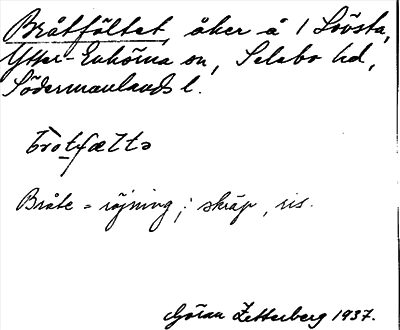 Bråtfältet, åker å 1 Lövsta,
Ytter-Enhörna sn, Selebo hd,
Södermanlands l.
brotfælta
Bråte = röjning; skräp, ris.
Göran Zetterberg 1937.